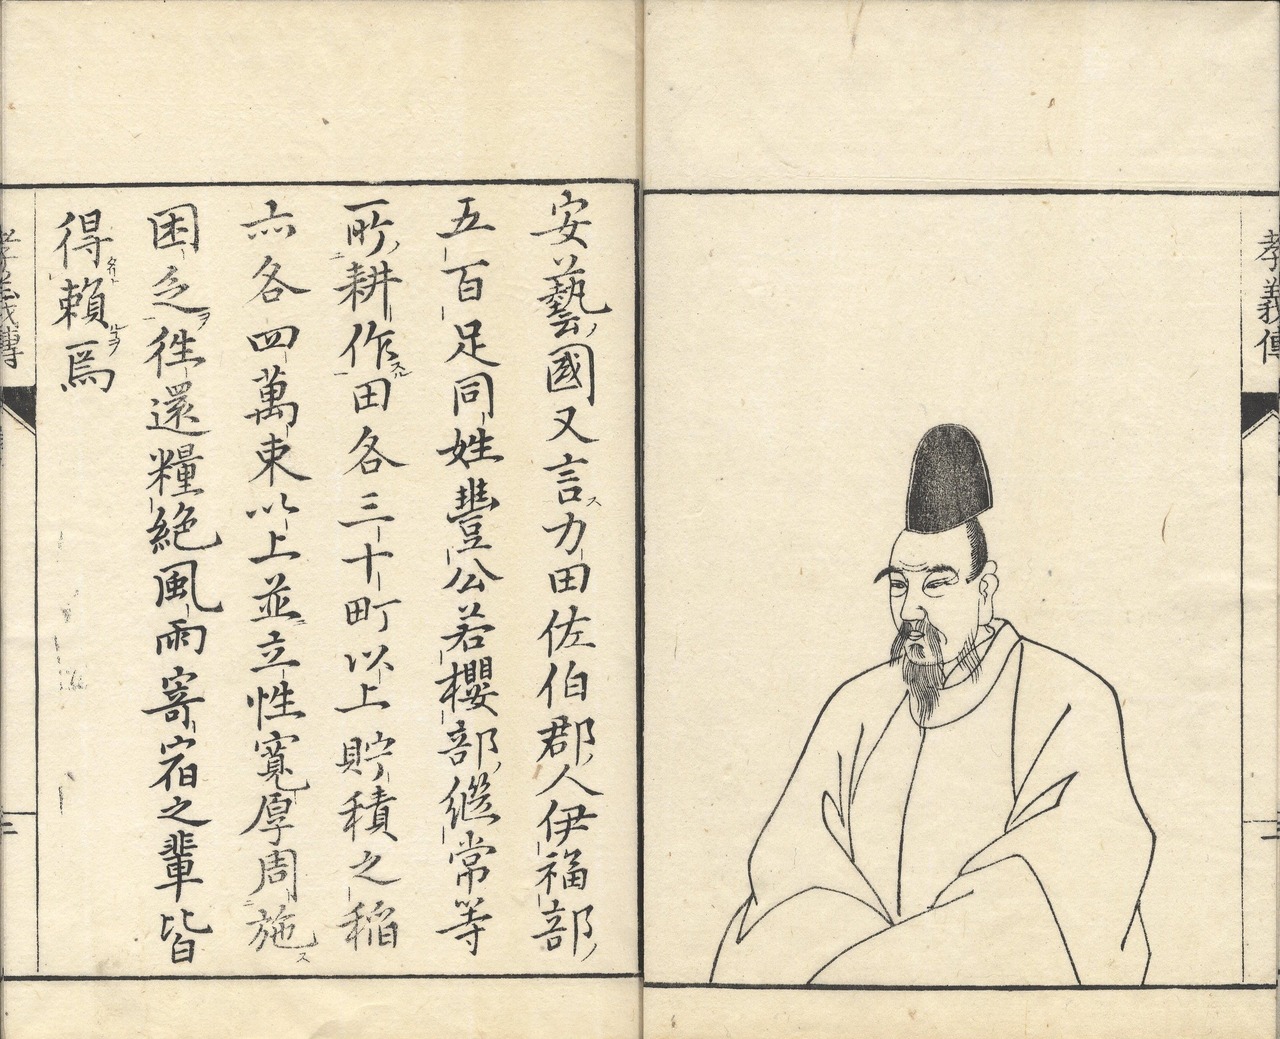 孝義傳
二
安藝ノ國又言ス力田佐伯郡ノ人伊福部ノ
五百足同姓豐公若櫻部ノ繼常等
所ノ耕作スル田各三十町以上貯積之稲
亦各四萬束以上並立性寛厚周施ス
困乏ヲ徃還糧絶風雨寄宿之輩皆
得頼焉
孝義傳
二